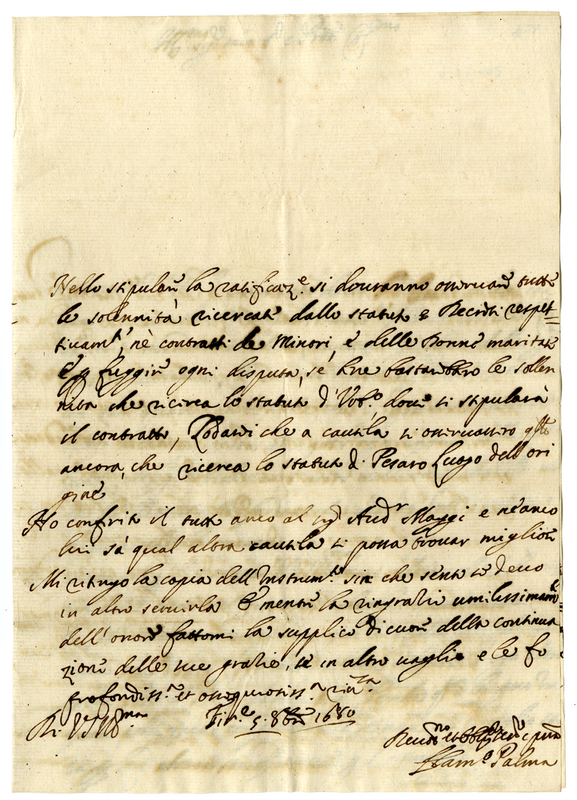 Nello stipular la ratificaz.e si douranno osseruare tutte
le solennità ricercate dallo statuto e Decreti respet=
tiuam.te nè contratti de Minori, e delle Donne maritate
E p fuggire ogni disputa, se bene bastarebbro le sollen
nità che ricerca lo statuto d' doue si stipularà
il contratto, Lodarei che a cautela si osseruassero
ancora, che ricerca lo statuto di Pesaro Luogo dell'ori
gine
Ho conferito il tutto anco al Aud.r Maggi e nè anco
lui sà qual altra cautela si possa trouar migliore
Mi ritengo la copia dell'Instrum.to sin che sento se deuo
in altro seruirla E mentre la ringratio umilissimam.te
dell'onore fattomi la supplico di cuore della continua
zione delle sue gratie, se in altro uaglio e le fo
profondiss.a et ossequiosiss.a riu.za
Di VS Ill.ma Fir.e 5. 8bre 1680
Palma